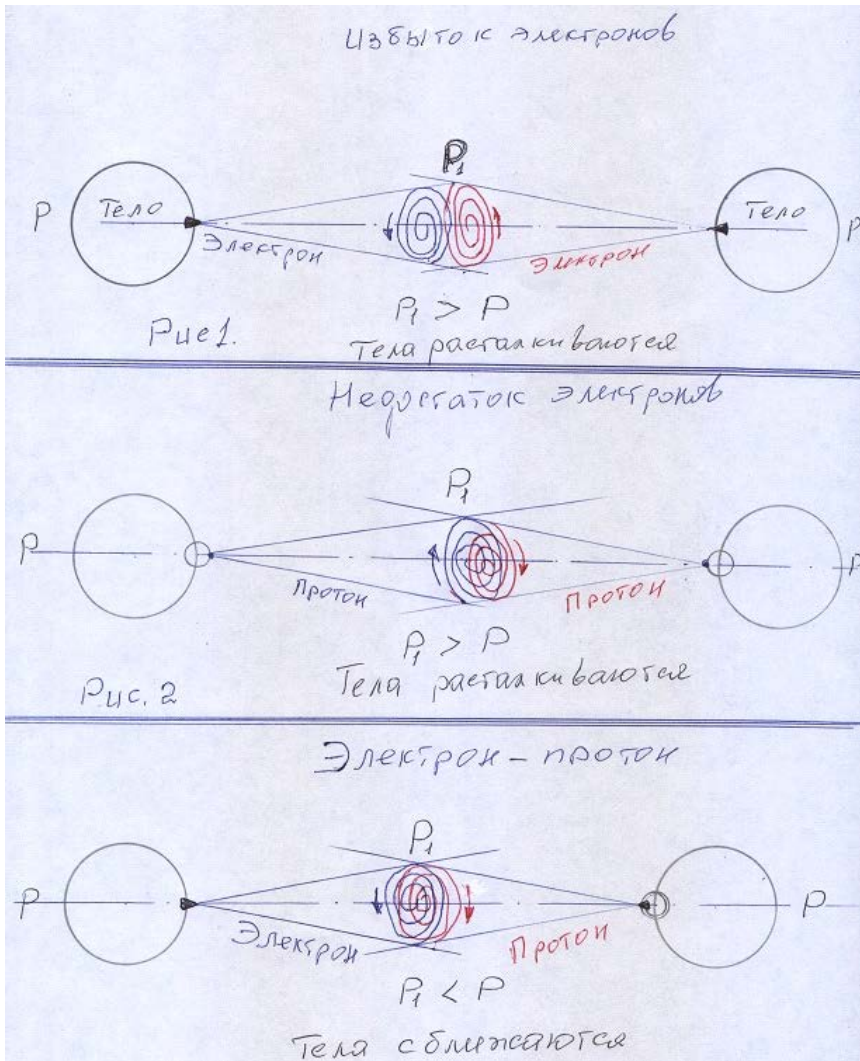 Избыток электронов
P₁
P Тело Тело P
Электрон Электрон
P₁ > P
Рис1.
Тела расталкиваются
Недостаток электронов
P₁
P P
Протон Протон
P₁ > P
Тела расталкиваются
Рис. 2
Электрон - протон
P₁
P P
Электрон Протон
P₁ < P
Тела сближаются